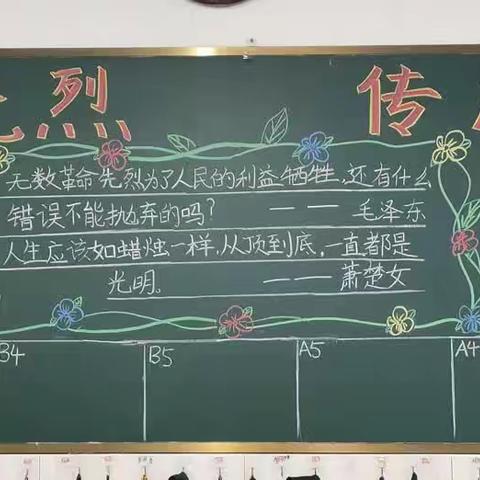 烈 传
无数革命先烈为了人民的利益牺牲,还有什么
错误不能抛弃的吗?
—— 毛泽东
人生应该如蜡烛一样,从顶到底,一直都是
光明。 —— 萧楚女
B4 B5 A5 A4